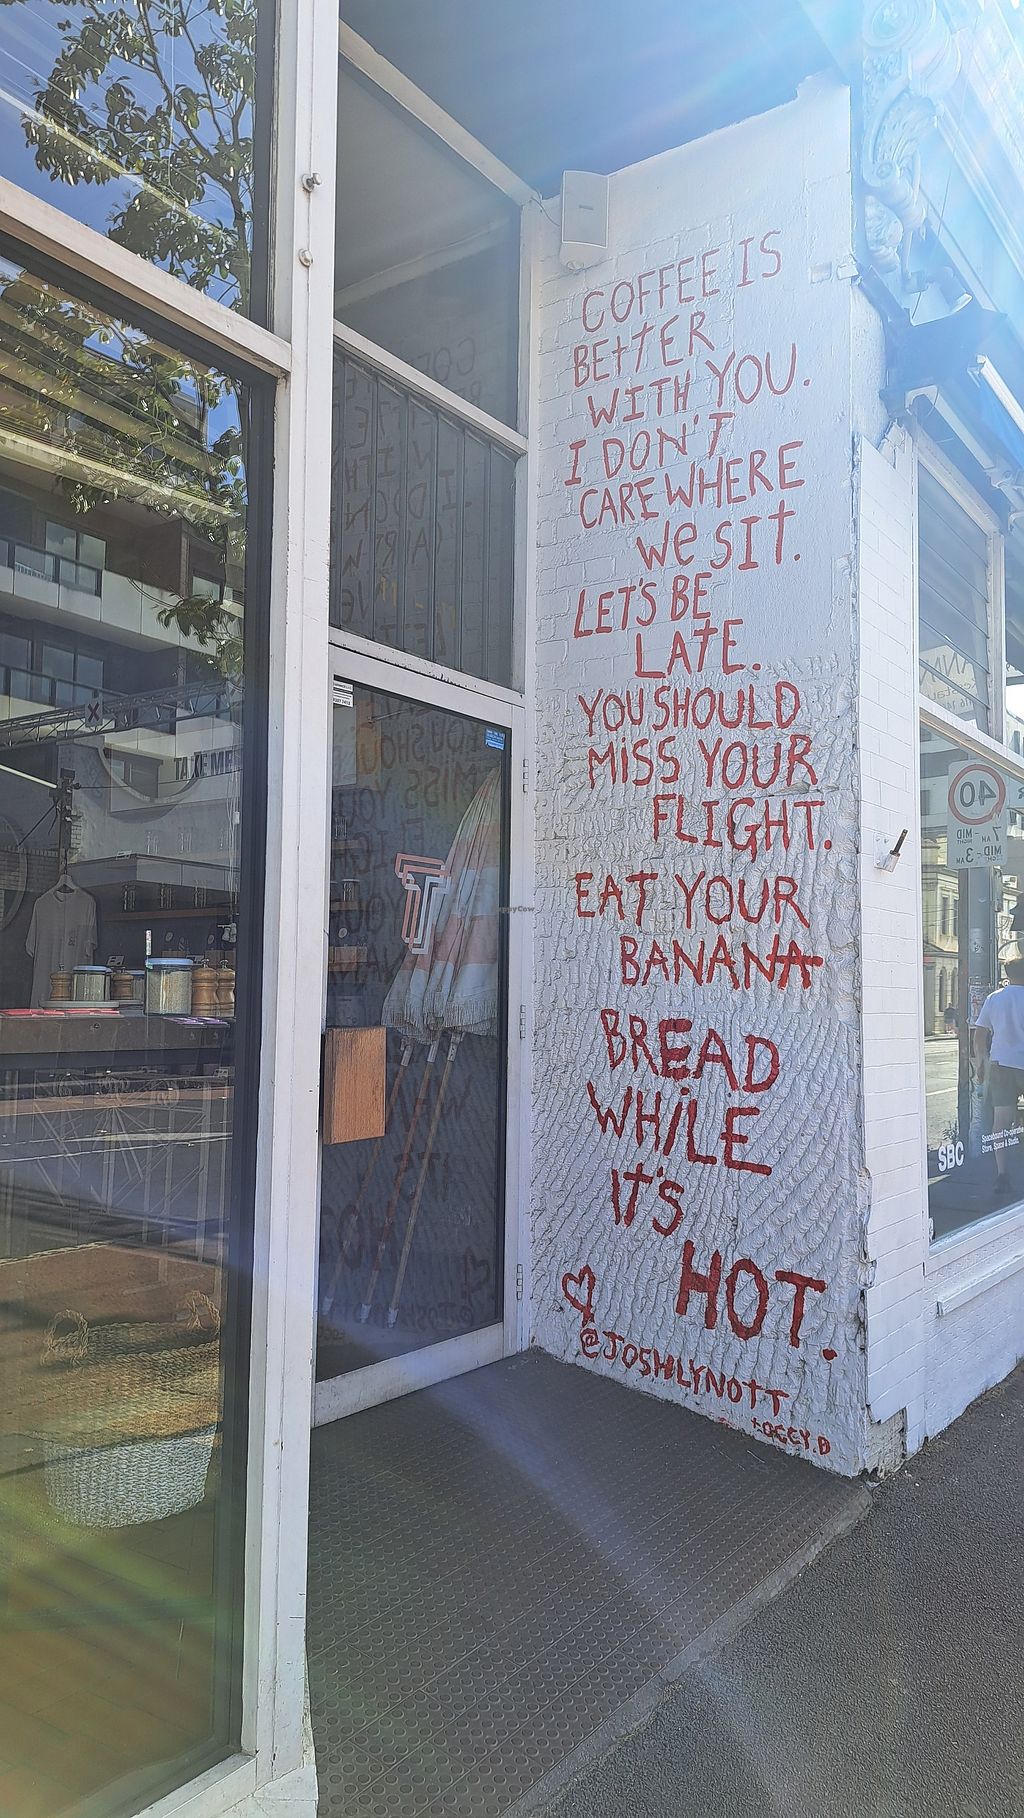 COFFEE IS
BEttER
WITH YOU.
I DON'T
CARE WHERE
We SIt.
LET'S BE
LAtE.
YOU SHOULD
MiSS YOUR
FLIGHT.
EAT YOUR
BANANA
BREAD
WHiLE
IT'S
HOT.
@JOSHLYNOTT
SBC
Spacebound Co-operative
Store, Space & Studio.
40
7 AM
MID-
NIGHT
MID-3 AM